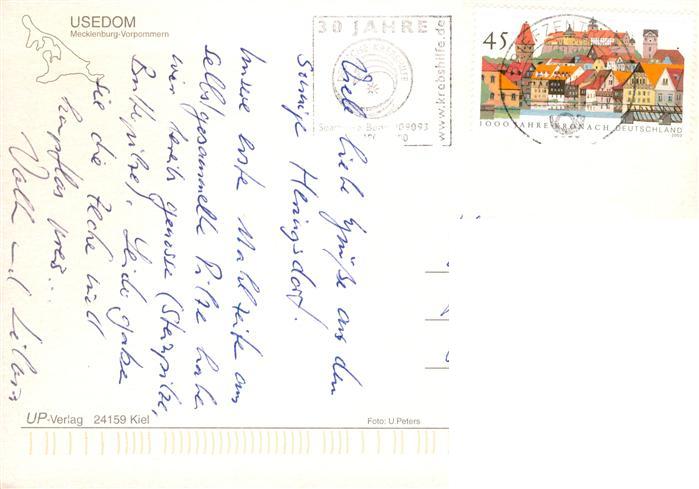 USEDOM
Mecklenburg-Vorpommern
30 JAHRE
www.krebshilfe.de
45
1000 JAHRE KRONACH DEUTSCHLAND
2003
Viele liebe Grüße aus den
Sonnige Heringsdorf.
Unsere erste Mahlzeite aus
selbstgesammelte Pilze habe
wir bereits genosse (Steinpilze,
Butterpilze). Leider gabe
sie die Zeche nicht
kampflos preis...
UP-Verlag 24159 Kiel
Foto: U.Peters